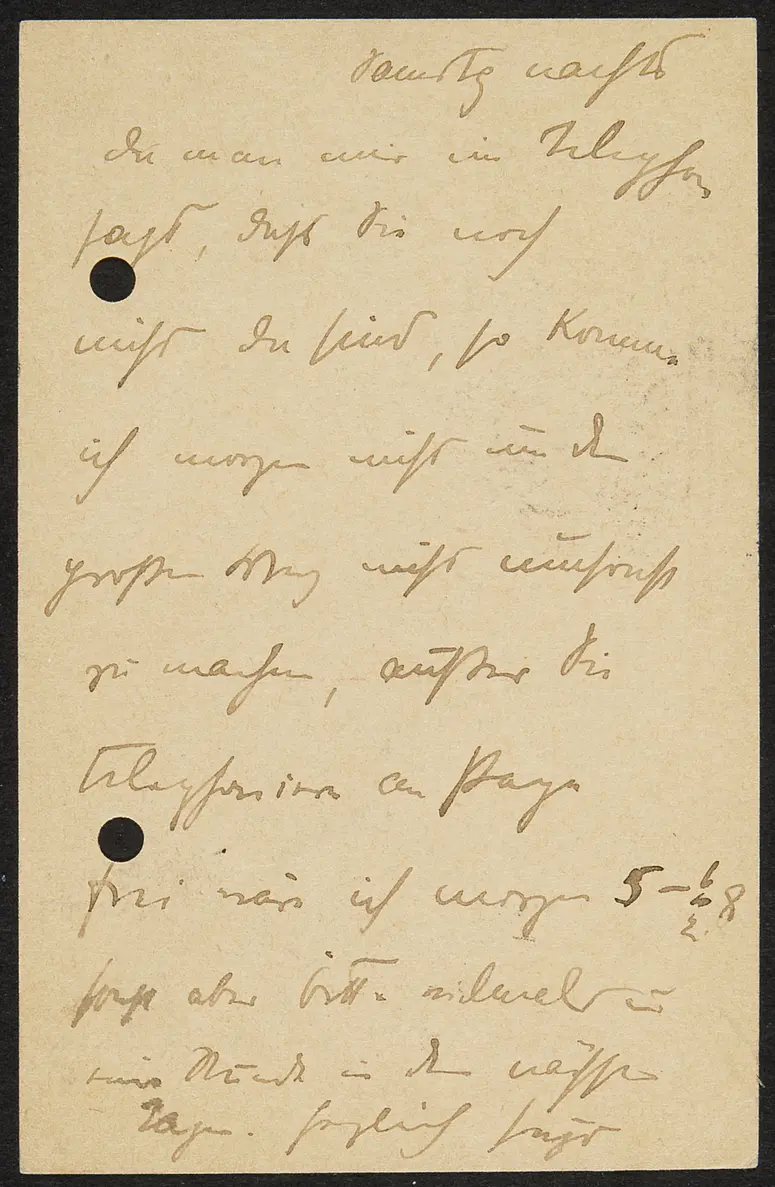 Samstg nachts
da man mir im Telephon
sagt, dass Sie noch
nicht da sind, so komme
ich morgen nicht um den
großen Weg nicht umsonst
zu machen, außer Sie
telephonieren an
frei wäre ich morgen 5 – 8
sonst aber bitte vielmals um
eine Stunde in den nächsten
Tagen. herzlich